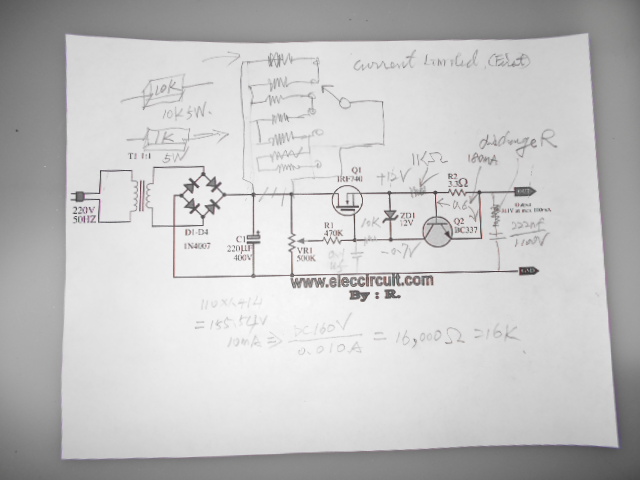 current Limited (First)
10K
10K 5W.
1K
5W
T1 1:1
220V
50HZ
D1-D4
1N4007
C1
220µF
400V
VR1
500K
R1
470K
Q1
IRF740
+12V
1KΩ
180mA
discharge R
R2
3.3Ω
0.6
ZD1
12V
10K
-0.7V
Q2
BC337
OUT
Output
GND
www.eleccircuit.com
By : R.
110x1.414
=155.54V
10mA ⇒ DC160V
0.010A
= 16,000Ω = 16K